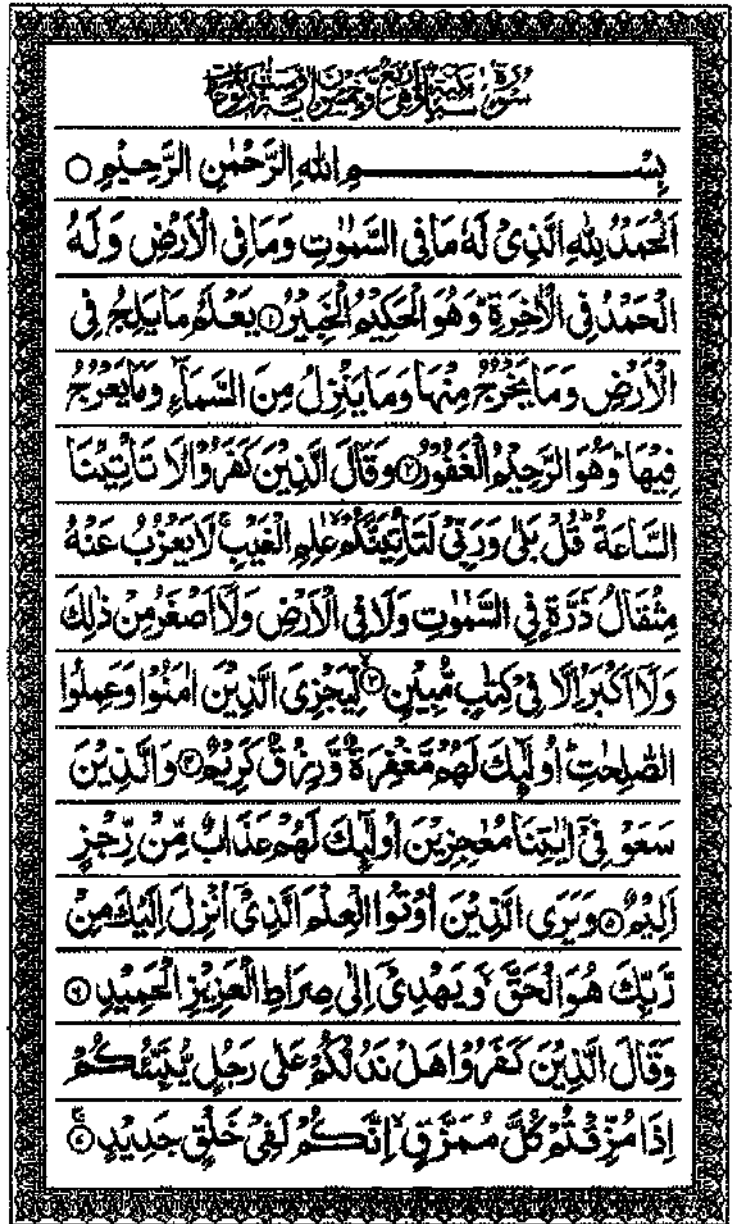 سُوْرَةُ سَبَاٍ مَكِّيَّةٌ وَّهِيَ اَرْبَعٌ وَّخَمْسُوْنَ اٰيَةً وَّسِتُّ رُكُوْعَاتٍ
بِسْمِ اللّٰهِ الرَّحْمٰنِ الرَّحِيْمِ ○
اَلْحَمْدُ لِلّٰهِ الَّذِيْ لَهٗ مَا فِي السَّمٰوٰتِ وَمَا فِي الْاَرْضِ وَلَهُ
الْحَمْدُ فِي الْاٰخِرَةِ ؕ وَهُوَ الْحَكِيْمُ الْخَبِيْرُ ۝۱ يَعْلَمُ مَا يَلِجُ فِي
الْاَرْضِ وَمَا يَخْرُجُ مِنْهَا وَمَا يَنْزِلُ مِنَ السَّمَآءِ وَمَا يَعْرُجُ
فِيْهَا ؕ وَهُوَ الرَّحِيْمُ الْغَفُوْرُ ۝۲ وَقَالَ الَّذِيْنَ كَفَرُوْا لَا تَاْتِيْنَا
السَّاعَةُ ؕ قُلْ بَلٰى وَرَبِّيْ لَتَاْتِيَنَّكُمْ ۙ عٰلِمِ الْغَيْبِ ۚ لَا يَعْزُبُ عَنْهُ
مِثْقَالُ ذَرَّةٍ فِي السَّمٰوٰتِ وَلَا فِي الْاَرْضِ وَلَاۤ اَصْغَرُ مِنْ ذٰلِكَ
وَلَاۤ اَكْبَرُ اِلَّا فِيْ كِتٰبٍ مُّبِيْنٍ ۝۳ لِّيَجْزِيَ الَّذِيْنَ اٰمَنُوْا وَعَمِلُوا
الصّٰلِحٰتِ ؕ اُولٰٓئِكَ لَهُمْ مَّغْفِرَةٌ وَّرِزْقٌ كَرِيْمٌ ۝۴ وَالَّذِيْنَ
سَعَوْ فِيْۤ اٰيٰتِنَا مُعٰجِزِيْنَ اُولٰٓئِكَ لَهُمْ عَذَابٌ مِّنْ رِّجْزٍ
اَلِيْمٌ ۝۵ وَيَرَى الَّذِيْنَ اُوْتُوا الْعِلْمَ الَّذِيْۤ اُنْزِلَ اِلَيْكَ مِنْ
رَّبِّكَ هُوَ الْحَقَّ ۙ وَيَهْدِيْۤ اِلٰى صِرَاطِ الْعَزِيْزِ الْحَمِيْدِ ۝۶
وَقَالَ الَّذِيْنَ كَفَرُوْا هَلْ نَدُلُّكُمْ عَلٰى رَجُلٍ يُّنَبِّئُكُمْ
اِذَا مُزِّقْتُمْ كُلَّ مُمَزَّقٍ ۙ اِنَّكُمْ لَفِيْ خَلْقٍ جَدِيْدٍ ۝۷